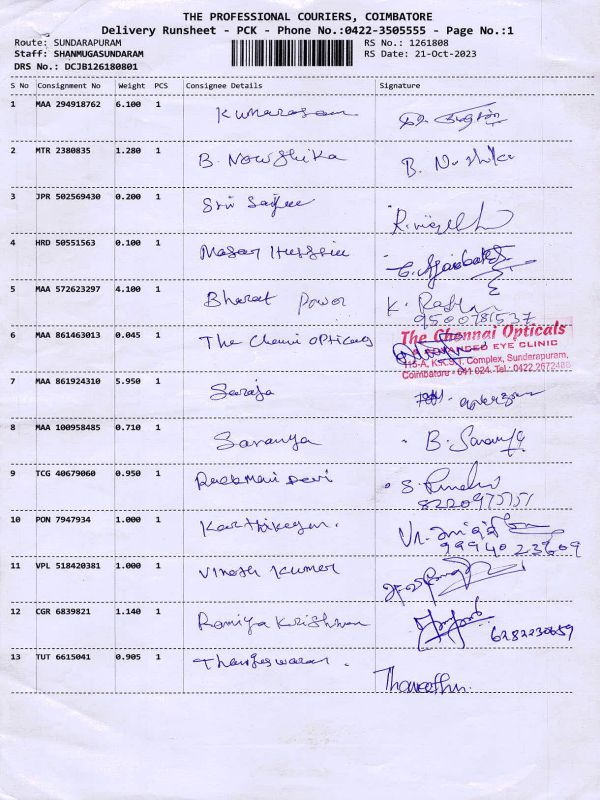 THE PROFESSIONAL COURIERS, COIMBATORE
Delivery Runsheet - PCK - Phone No.:0422-3505555 - Page No.:1
Route: SUNDARAPURAM RS No.: 1261808
Staff: SHANMUGASUNDARAM RS Date: 21-Oct-2023
DRS No.: DCJB126180801
S No Consignment No Weight PCS Consignee Details Signature
1 MAA 294918762 6.100 1 Kumarasan
2 MTR 2380835 1.280 1 B. Nowshika B. Nowshika
3 JPR 502569430 0.200 1 Sri
4 HRD 50551563 0.100 1 Hussain
5 MAA 572623297 4.100 1 Bharat Power K.
9500781537
6 MAA 861463013 0.045 1 The Chennai Opticals The Chennai Opticals
ADVANCED EYE CLINIC
115-A, K.K.S.T. Complex, Sunderapuram,
Coimbatore - 641 024. Tel: 0422 2672488
7 MAA 861924310 5.950 1 Saroja
8 MAA 100958485 0.710 1 Saranya B. Saranya
9 TCG 40679060 0.950 1 Devi S.
10 PON 7947934 1.000 1 Karthikeyan.
99940 23609
11 VPL 518420381 1.000 1 Vinoth Kumar
12 CGR 6839821 1.140 1 Ramiya Krishnan 6282230659
13 TUT 6615041 0.905 1 Thangeswaran.